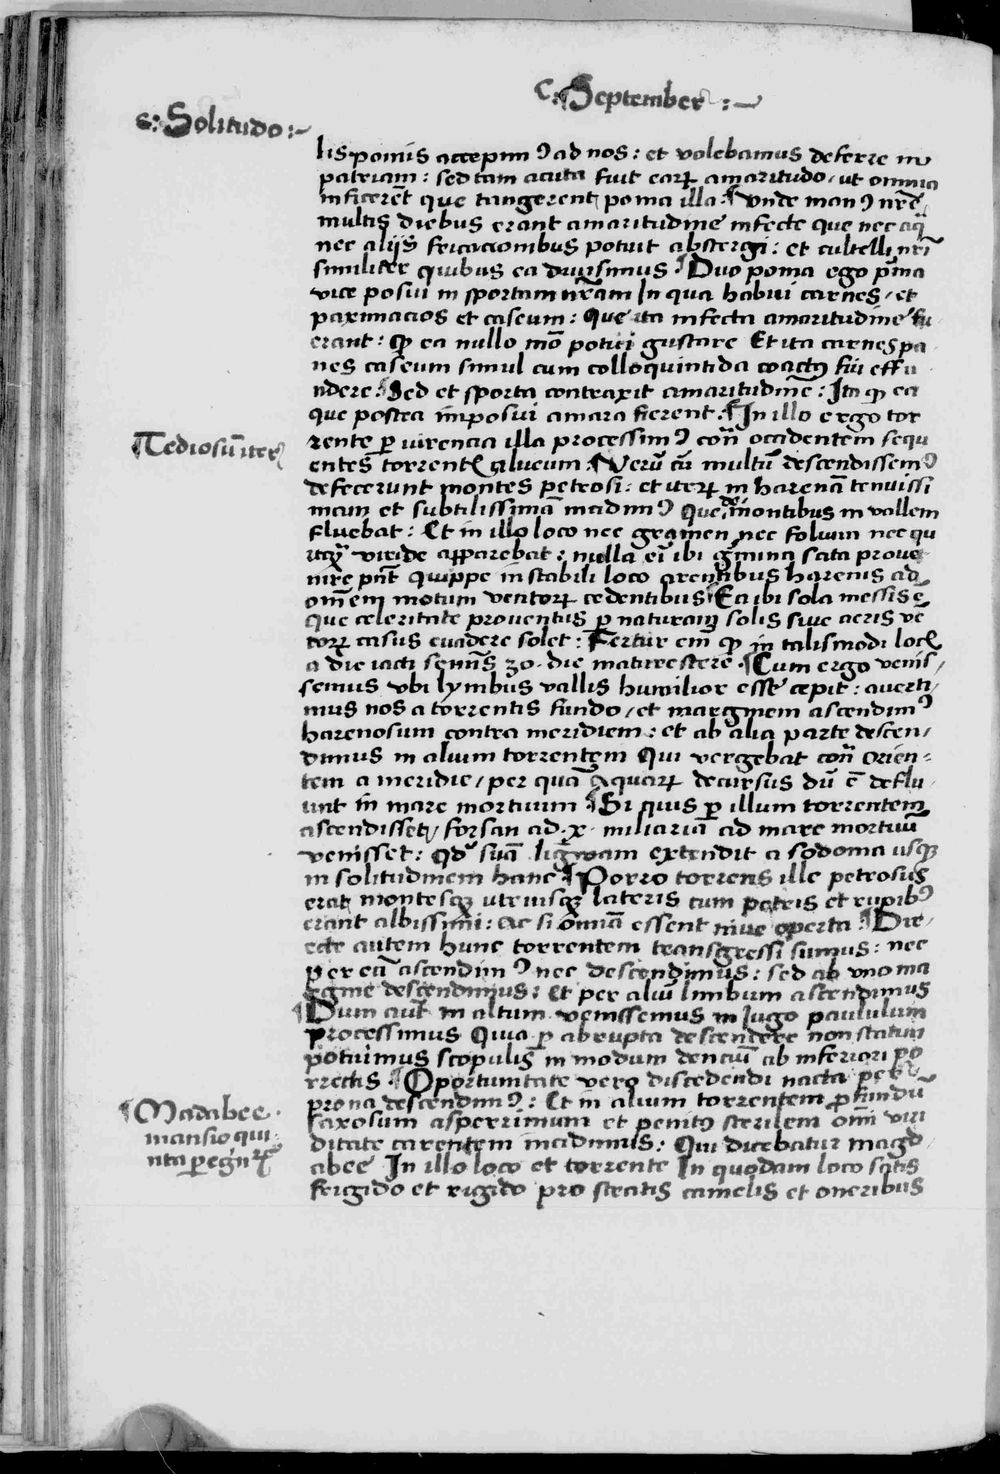 C: September :—
S: Solitudo :~
lis pomis accepimꝰ ad nos : et volebamus deferre in
patriam : sed tam acuta fuit earꝝ amaritudo, ut omnia
inficerēt que tangerent poma illa. ¶ Unde manꝰ nr̄e
multis diebus erant amaritudine infecte que nec aq̄
nec alijs fricacionibus potuit abstergi : et cultelli nr̄i
similiter quibus ea divisimus ¶ Duo poma ego p̄ma
vice posui in sportam nr̄am In qua habui carnes, et
paximacios et caseum : Que ita infecta amaritudine fu
erant : qꝫ ea nullo mō potui gustare Et ita carnes pa
nes caseum simul cum colloquintida coactꝰ fui effu
ndere. ¶ Sed et sporta contraxit amaritudinē : Ita qꝫ ea
que postea imposui amara fierent. ¶ In illo ergo tor
¶ Tediosū iter
rente ꝑ virencia illa processimꝰ con̄ occidentem sequ
entes torrentꝭ alveum. ¶ Verū cū multū descendissemꝰ
defecerunt montes petrosi : et iterꝝ in harenā tenuissi
mam et subtilissimā incidimꝰ Que de montibus in vallem
fluebat : Et in illo loco nec gramen nec folium nec qu
icqꝫ viride apparebat : nulla ei̅ ibi g̅mina sata prove
nire pn̅t quippe instabili loco arentibus harenis ad
omēm motum ventorꝝ cedentibus ¶ Ea ibi sola messis ē
que celeritate proventus ꝑ naturam solis sive aeris ve
torꝝ casus evadere solet : Fertur eni̅ qꝫ in talismodi locꝭ
a die iacti semīs 30. die maturescere. ¶ Cum ergo venis,
semus ubi lymbus vallis humilior esse cepit : averti,
mus nos a torrentis fundo, et marginem ascendimꝰ
harenosum contra meridiem : et ab alia parte descen,
dimus in alium torrentem Qui vergebat con̄ orien=
tem a meridie, per quā aquarꝝ decursus dū ē deflu
unt in mare mortuum ¶ Si quis ꝑ illum torrentem
ascendisset, forsan ad .x. miliaria ad mare mortuū
venisset : qd̕ suā lingwam extendit a sodoma usqꝫ
in solitudinem hanc ¶ Porro torrens ille petrosus
erat montesqꝫ utriusqꝫ lateris cum petris et rupibꝰ
erant albissimi : ac si omnia essent nive operta ¶ Dir,
ecte autem hunc torrentem transgressi sumus : nec
per eū ascendimꝰ nec descendimus : sed ab uno ma
rgine descendimus : et per aliū limbum ascendimus
¶ Dum aut̄ in altum venissemus in Iugo paululum
processimus Quia ꝑ abrupta descendere non statim
potuimus scopulis in modum denciū ab inferiori po
rrectis. ¶ Oportunitate vero discedendi nacta per
prona descendimꝰ : Et in alium torrentem ꝓfundū
¶ Madabee.
mansio qui
nta peregr̄
saxosum asperrimum et penitꝰ sterilem om̄i viri
ditate carentem incidimus : Qui dicebatur magd
abee In illo loco et torrente In quodam loco satis
frigido et rigido prostratis camelis et oneribus